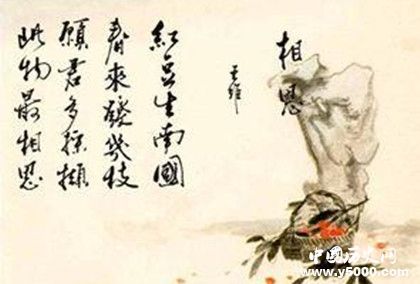 相思
王維
紅豆生南國
春來發幾枝
願君多採擷
此物最相思
中国历史网
www.y5000.com